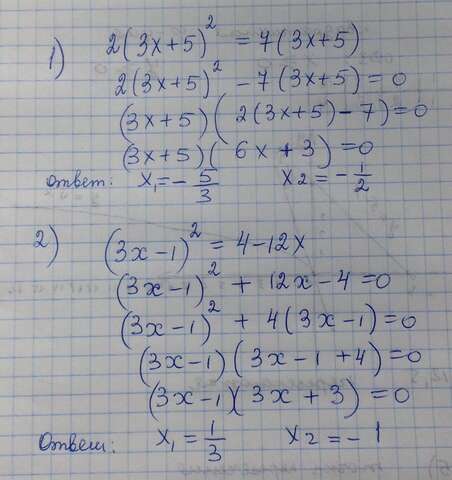 1) 2(3x+5)² = 7(3x+5)
2(3x+5)² - 7(3x+5) = 0
(3x+5)(2(3x+5)-7) = 0
(3x+5)(6x+3) = 0
ответ: x₁ = -5/3 x₂ = -1/2
2) (3x-1)² = 4-12x
(3x-1)² + 12x-4=0
(3x-1)² + 4(3x-1)=0
(3x-1)(3x-1+4)=0
(3x-1)(3x+3)=0
Ответ: x₁ = 1/3 x₂ = -1